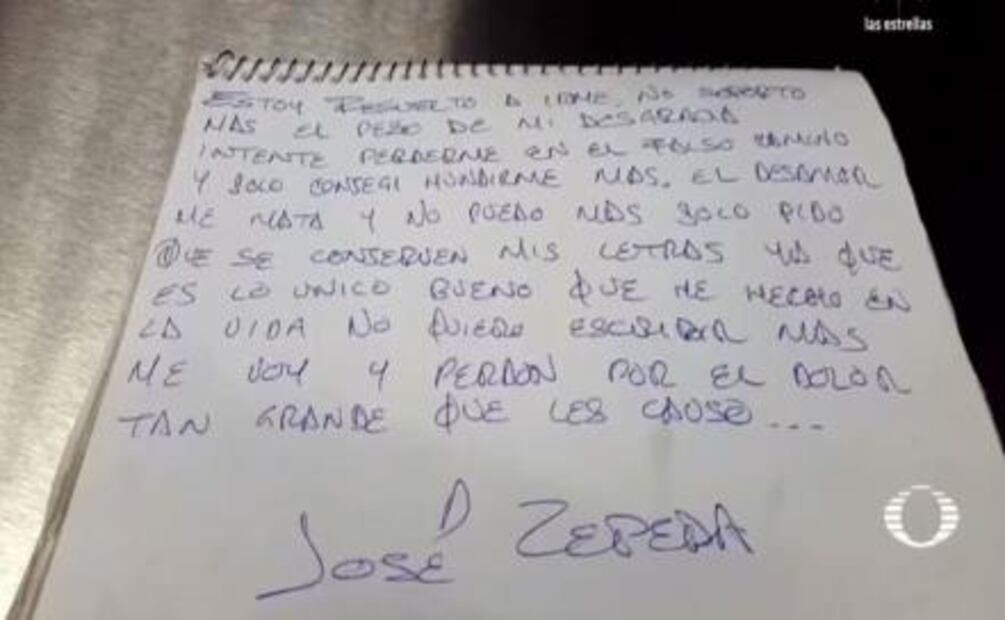 las estrellas
ESTOY RESUELTO A IRME, NO SOPORTO
MAS EL PESO DE MI DESGRACIA
INTENTE PERDERME EN EL FALSO CAMINO
Y SOLO CONSEGI HUNDIRME MAS. EL DESAMOR
ME MATA Y NO PUEDO MAS SOLO PIDO
QUE SE CONSERVEN MIS LETRAS YA QUE
ES LO UNICO BUENO QUE HE HECHO EN
LA VIDA NO QUIERO ESCRIBIR MAS
ME VOY Y PERDON POR EL DOLOR
TAN GRANDE QUE LES CAUSE...
JOSÉ D ZEPEDA